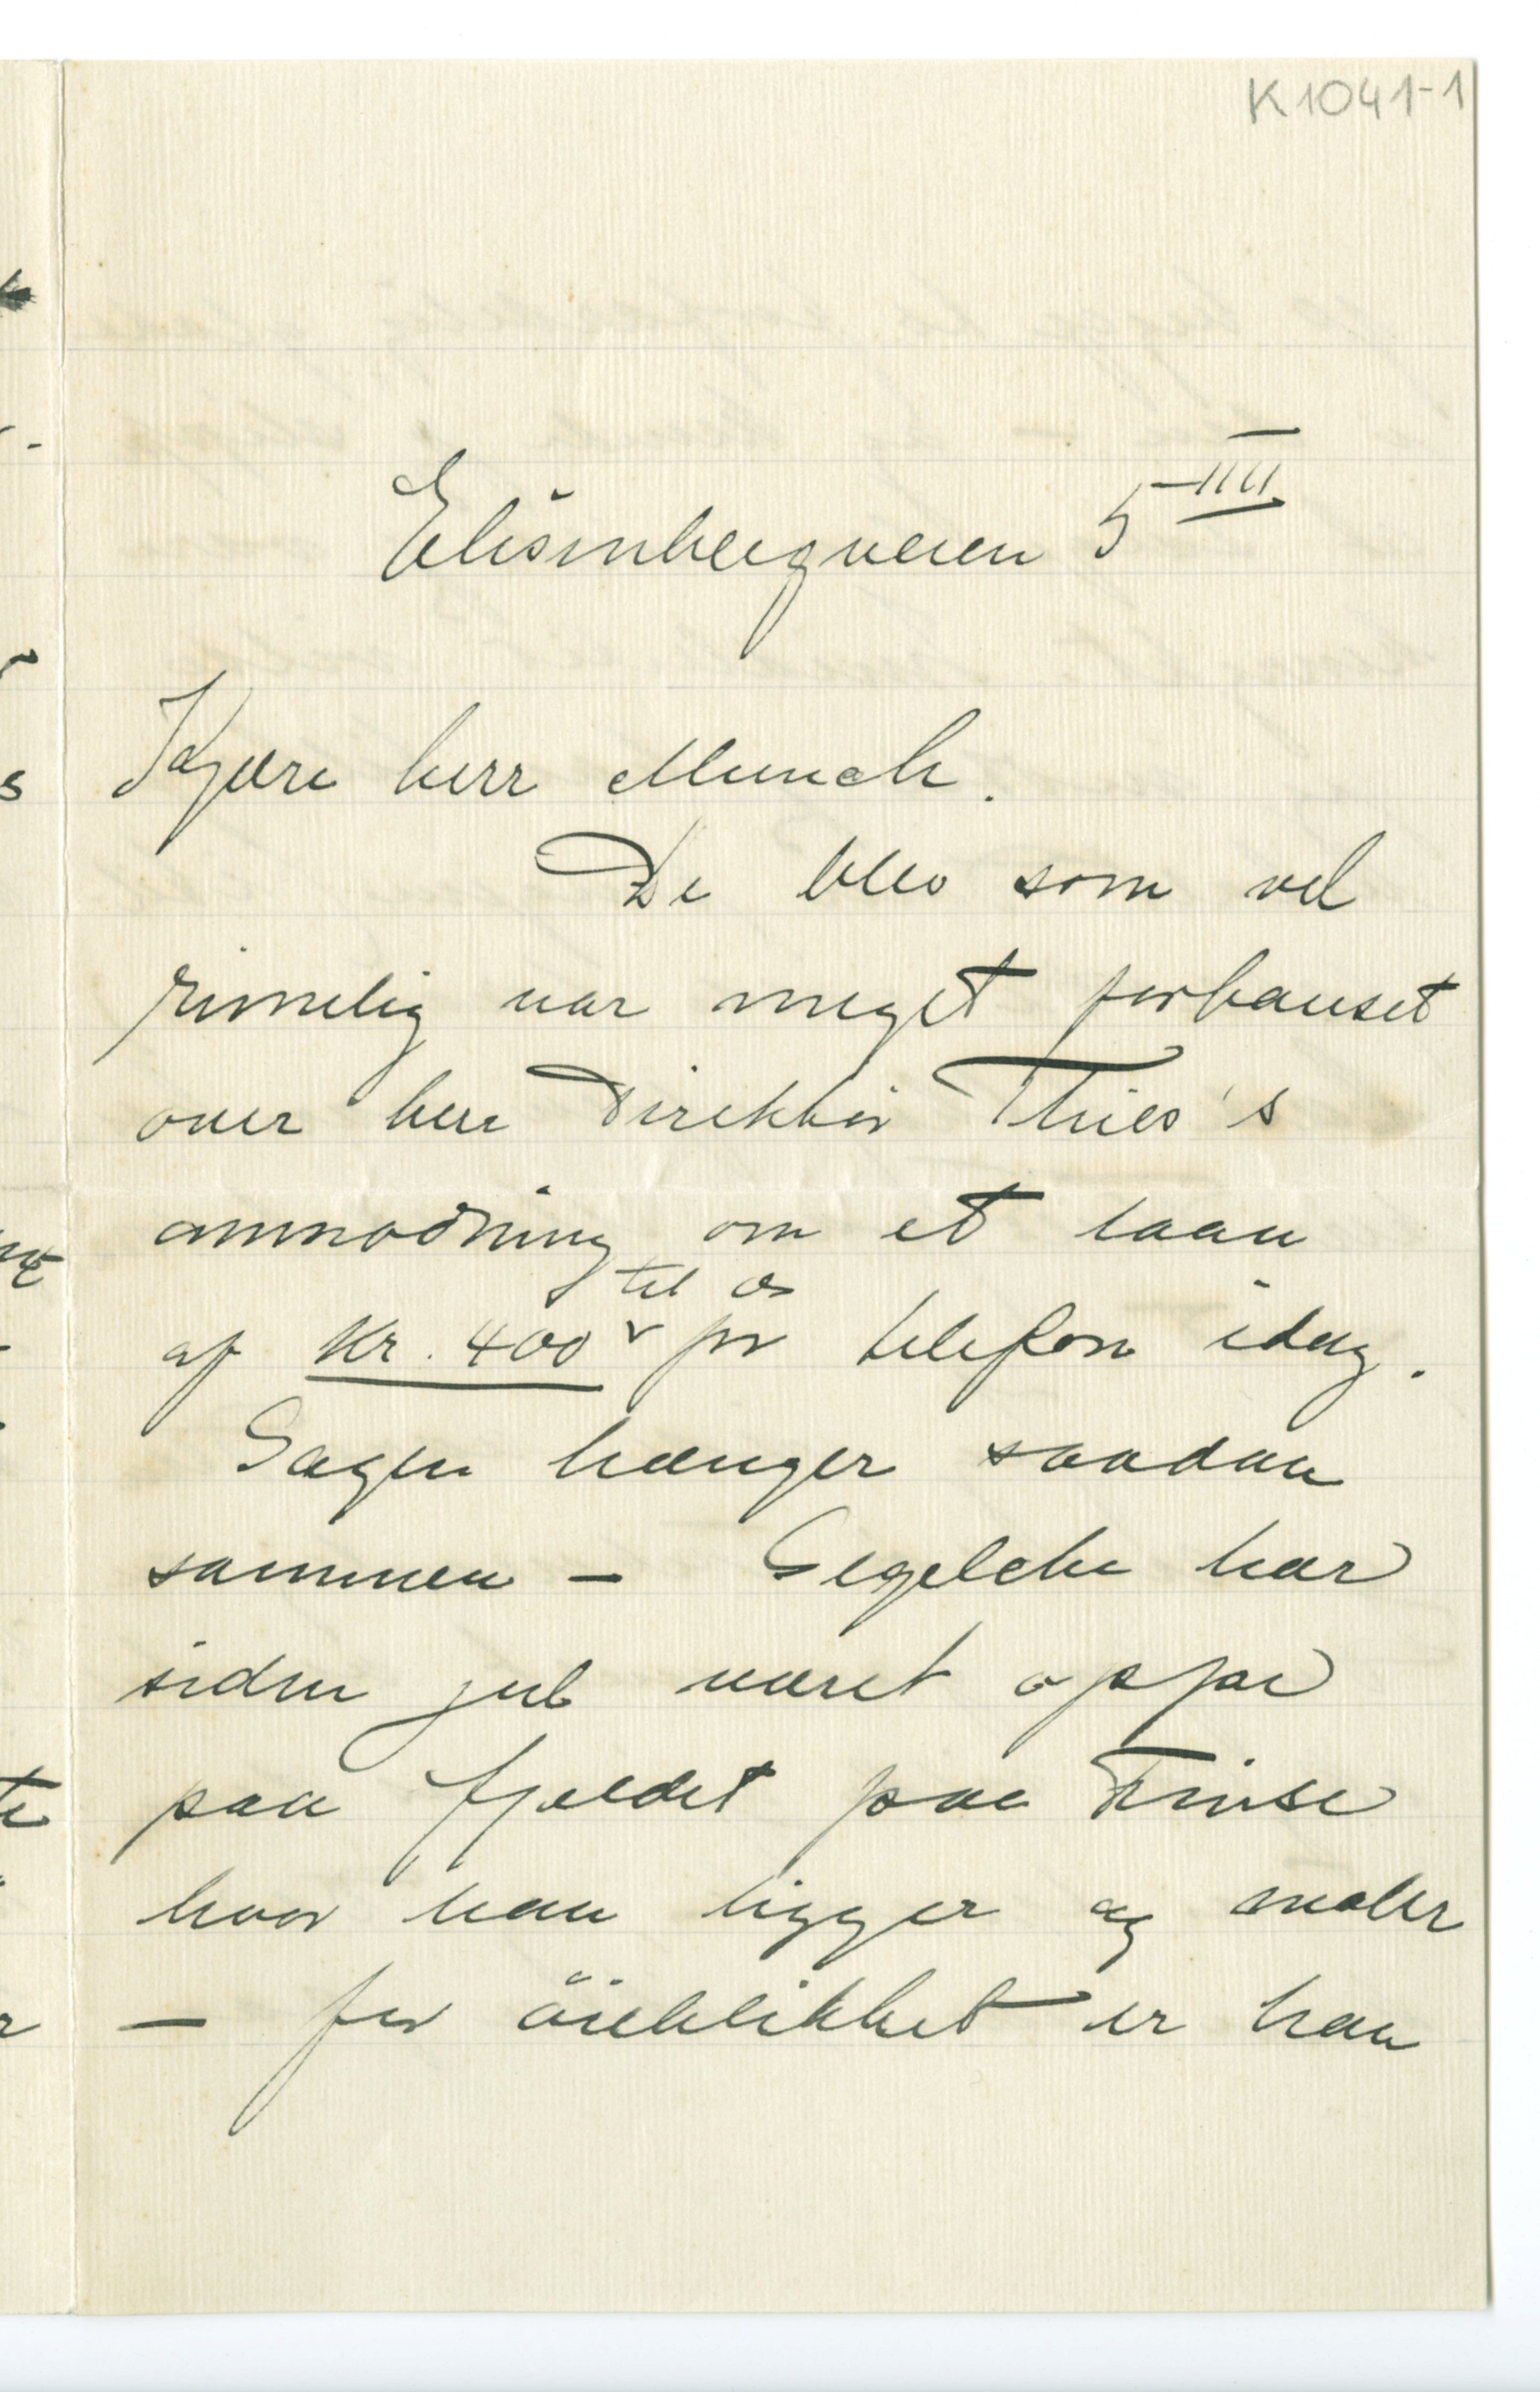 K1041-1
Elisenbergveien 5 IIII
Kjære herr Munch.
De blev som vel
rimelig var meget forbauset
over herr Direktør Thiis's
anmodning om et laan
til os
af Kr. 400 pr telefon idag.
Sagen hænger saadan
sammen – Segelcke har
siden jul været oppe
paa fjeldet paa Finse
hvor han ligger og maler
– for öieblikket er han